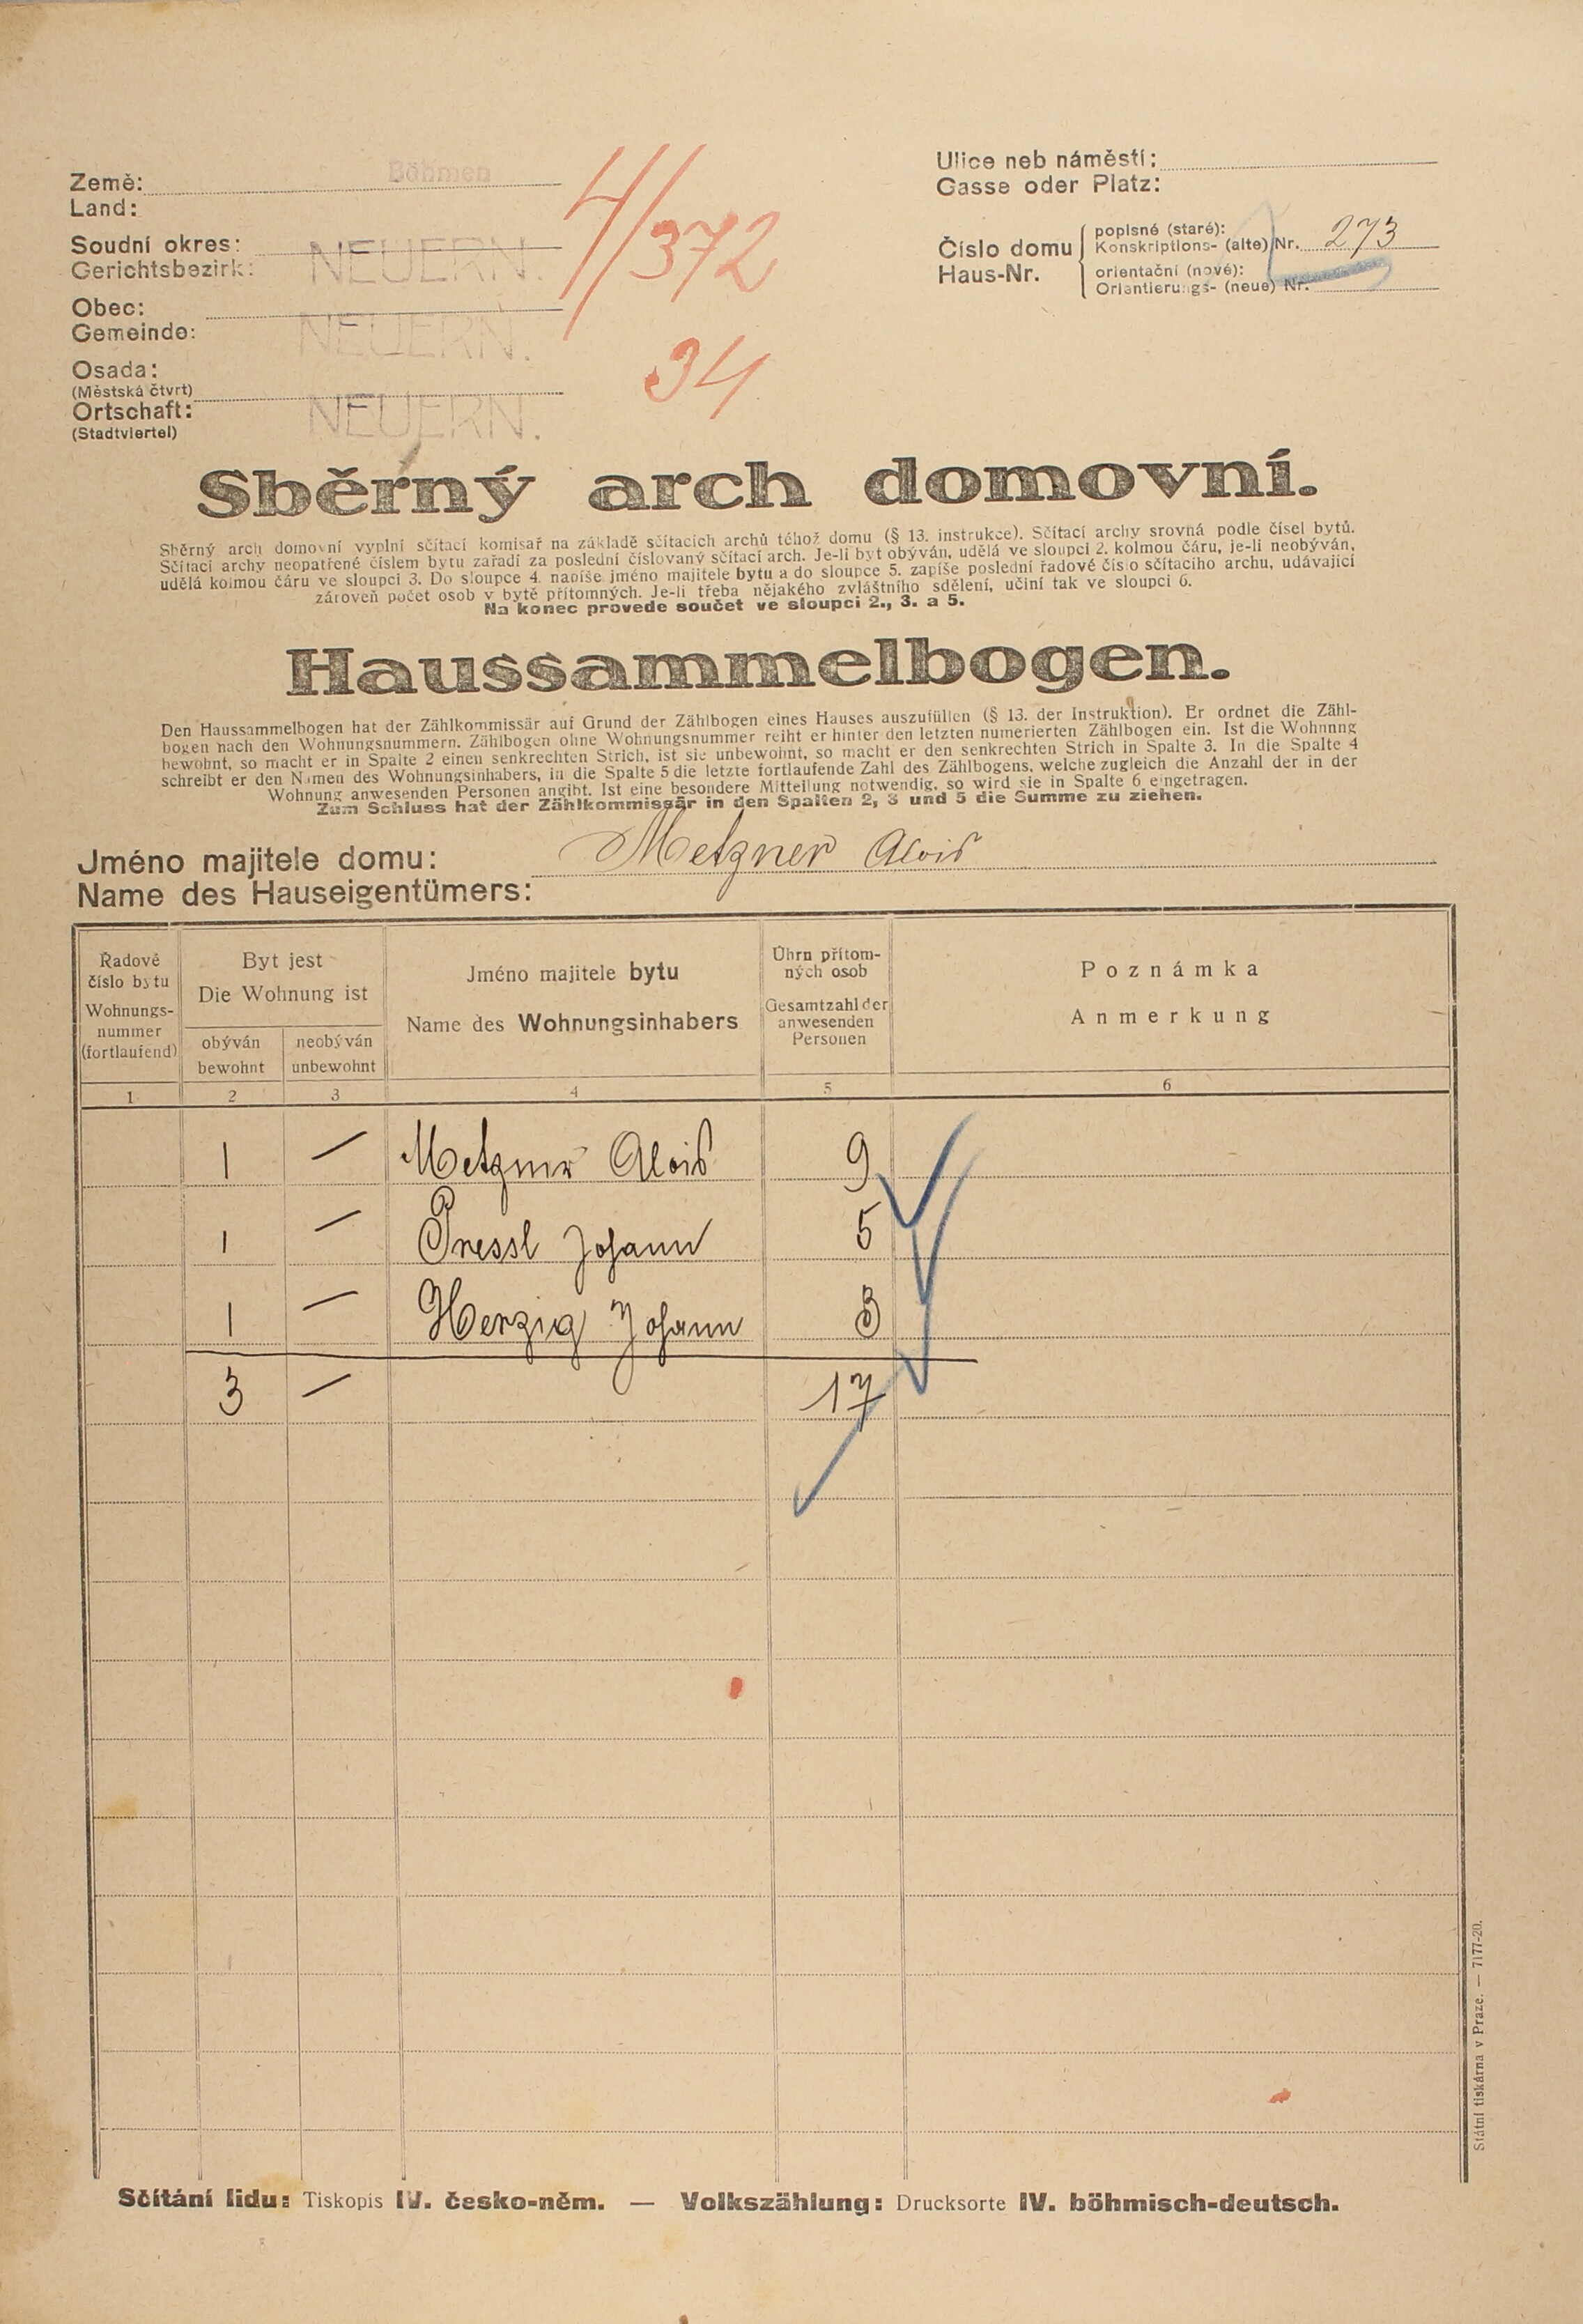 Země: Böhmen
Land:
Soudní okres: NEUERN.
Gerichtsbezirk:
Obec: NEUERN.
Gemeinde:
Osada:
(Městská čtvrt)
Ortschaft: NEUERN.
(Stadtviertel)
4/372
34
Ulice neb náměstí:
Gasse oder Platz:
Číslo domu
Haus-Nr.
popisné (staré):
Konskriptions- (alte) Nr. 273
orientační (nové):
Orientierungs- (neue) Nr.
Sběrný arch domovní.
Sběrný arch domovní vyplní sčítací komisař na základě sčítacích archů téhož domu (§ 13. instrukce). Sčítací archy srovná podle čísel bytů.
Sčítací archy neopatřené číslem bytu zařadí za poslední číslovaný sčítací arch. Je-li byt obýván, udělá ve sloupci 2. kolmou čáru, je-li neobýván,
udělá kolmou čáru ve sloupci 3. Do sloupce 4. napíše jméno majitele bytu a do sloupce 5. zapíše poslední řadové číslo sčítacího archu, udávající
zároveň počet osob v bytě přítomných. Je-li třeba nějakého zvláštního sdělení, učiní tak ve sloupci 6.
Na konec provede součet ve sloupci 2., 3. a 5.
Haussammelbogen.
Den Haussammelbogen hat der Zählkommissär auf Grund der Zählbogen eines Hauses auszufüllen (§ 13. der Instruktion). Er ordnet die Zähl-
bogen nach den Wohnungsnummern. Zählbogen ohne Wohnungsnummer reiht er hinter den letzten numerierten Zählbogen ein. Ist die Wohnung
bewohnt, so macht er in Spalte 2 einen senkrechten Strich, ist sie unbewohnt, so macht er den senkrechten Strich in Spalte 3. In die Spalte 4
schreibt er den Namen des Wohnungsinhabers, in die Spalte 5 die letzte fortlaufende Zahl des Zählbogens, welche zugleich die Anzahl der in der
Wohnung anwesenden Personen angibt. Ist eine besondere Mitteilung notwendig, so wird sie in Spalte 6 eingetragen.
Zum Schluss hat der Zählkommissär in den Spalten 2, 3 und 5 die Summe zu ziehen.
Jméno majitele domu: Metzner Alois
Name des Hauseigentümers:
Řadové
číslo bytu
Wohnungs-
nummer
(fortlaufend)
Byt jest
Die Wohnung ist
obýván
bewohnt
neobýván
unbewohnt
Jméno majitele bytu
Name des Wohnungsinhabers
Úhrn přítom-
ných osob
Gesamtzahl der
anwesenden
Personen
Poznámka
Anmerkung
1 2 3 4 5 6
1 — Metzner Alois 9
1 — Pressl Johann 5
1 — Herzig Johann 3
3 — 17
Státní tiskárna v Praze. — 7177-20.
Sčítání lidu: Tiskopis IV. česko-něm. — Volkszählung: Drucksorte IV. böhmisch-deutsch.